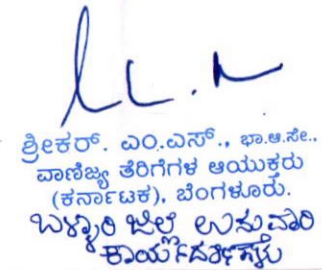 ಶ್ರೀಕರ್. ಎಂ.ಎಸ್., ಭಾ.ಆ.ಸೇ.,
ವಾಣಿಜ್ಯ ತೆರಿಗೆಗಳ ಆಯುಕ್ತರು
(ಕರ್ನಾಟಕ), ಬೆಂಗಳೂರು.
ಬಳ್ಳಾರಿ ಜಿಲ್ಲೆ ಉಸ್ತುವಾರಿ
ಕಾರ್ಯದರ್ಶಿಗಳು